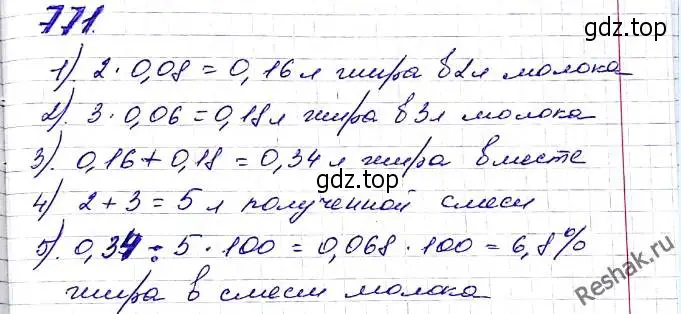 771.
gdz.top
1). 2 · 0,08 = 0,16 л жира в 2 л молока
2). 3 · 0,06 = 0,18 л жира в 3 л молока
3). 0,16 + 0,18 = 0,34 л жира вместе
gdz.top
4). 2 + 3 = 5 л полученной смеси
5). 0,34 : 5 · 100 = 0,068 · 100 = 6,8%
жира в смеси молока
gdz.top
Reshak.ru